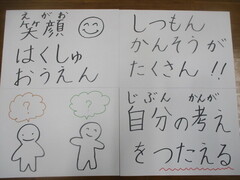 えがお
笑顔
はくしゅ
おうえん
しつもん
かんそうが
たくさん!!
?
?
じぶん かんが
自分の考え
をつたえる